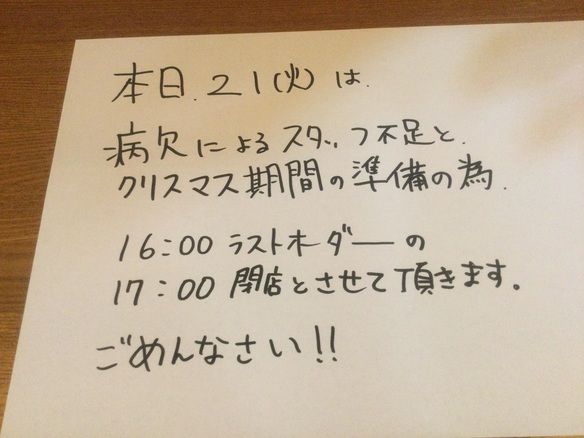 本日、21(火)は、
病欠によるスタッフ不足と、
クリスマス期間の準備の為、
16:00 ラストオーダーの
17:00 閉店とさせて頂きます。
ごめんなさい!!